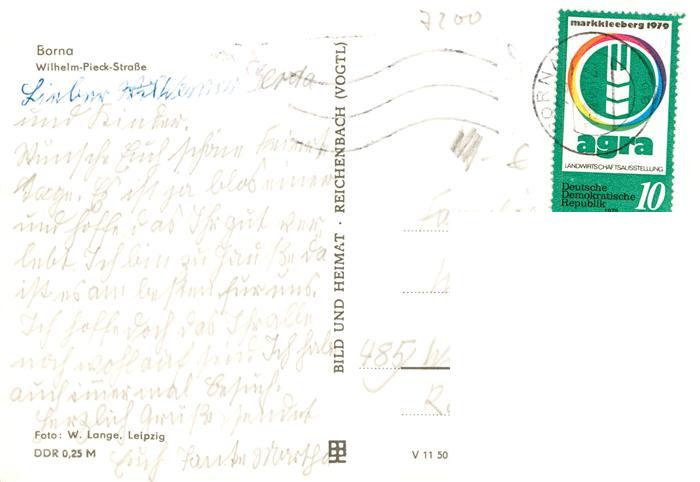 7200
Borna
Wilhelm-Pieck-Straße
Lieber Gerda
und Kinder.
Wünsche Euch schöne Feiert
tage. Es ist ja blos einer
und hoffe das Ihr gut ver
lebt Ich bin zu Hause da
ist es am besten für uns.
Ich hoffe doch das Ihr alle
noch wohlauf seid Ich hab
auch immer mal Besuch.
Herzlich Grüße sendet
Euch Tante Martha
Foto: W. Lange, Leipzig
DDR 0,25 M
BILD UND HEIMAT · REICHENBACH (VOGTL)
V 11 50
485
markkleeberg 1979
agra
LANDWIRTSCHAFTSAUSSTELLUNG
Deutsche
Demokratische
Republik
10
1979
BORNA